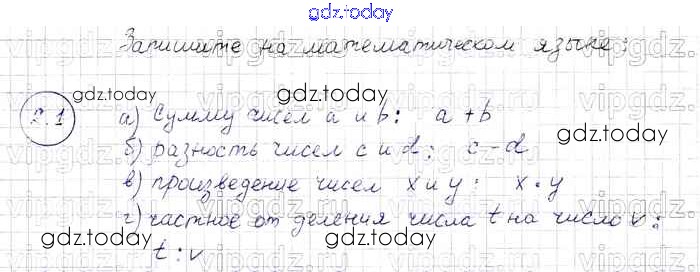 gdz.today
Запишите на математическом языке:
gdz.today
gdz.today
2.1 а) Сумму чисел a и b: a + b
б) разность чисел c и d: c - d
в) произведение чисел x и y: x · y
г) частное от деления числа t на число v:
gdz.today
gdz.today
t : v